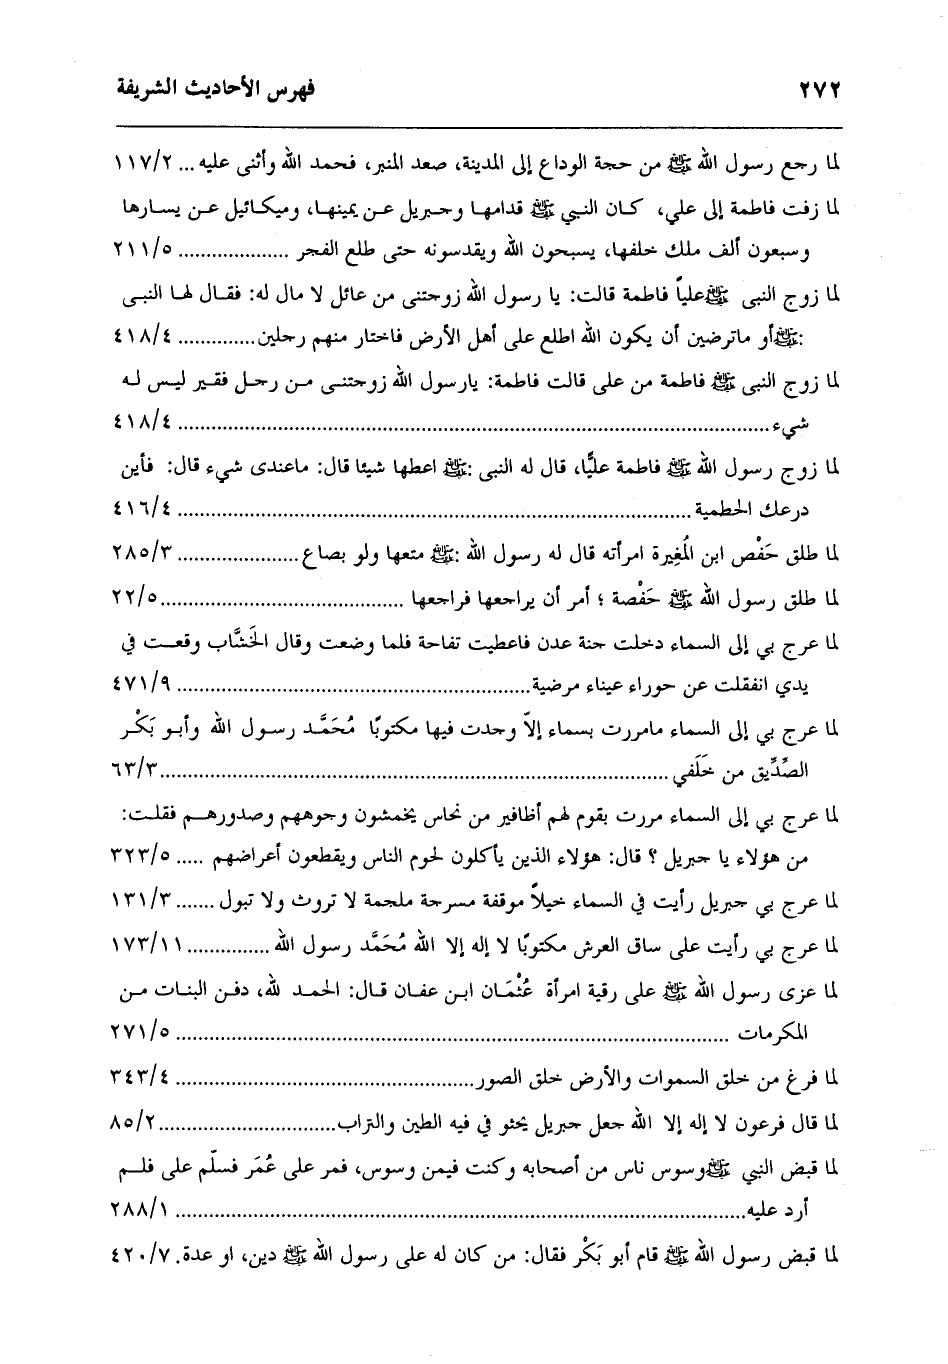 ٢٧٢ فهرس الأحاديث الشريفة
لما رجع رسول الله ﷺ من حجة الوداع إلى المدينة، صعد المنبر، فحمد الله وأثنى عليه ... ١١٧/٢
لما زفت فاطمة إلى علي، كان النبي ﷺ قدامها وجبريل عن يمينها، وميكائيل عن يسارها
وسبعون ألف ملك خلفها، يسبحون الله ويقدسونه حتى طلع الفجر .................... ٢١١/٥
لما زوج النبى ﷺعلياً فاطمة قالت: يا رسول الله زوجتنى من عائل لا مال له: فقال لها النبى
:ﷺأو ماترضين أن يكون الله اطلع على أهل الأرض فاختار منهم رجلين.............. ٤١٨/٤
لما زوج النبى ﷺ فاطمة من على قالت فاطمة: يارسول الله زوجتنى من رجل فقير ليس له
شيء............................................................................................................ ٤١٨/٤
لما زوج رسول الله ﷺ فاطمة عليًّا، قال له النبى :ﷺ اعطها شيئا قال: ماعندى شيء قال: فأين
درعك الحطمية.............................................................................................. ٤١٦/٤
لما طلق حَفْص ابن المُغِيرة امرأته قال له رسول الله :ﷺ متعها ولو بصاع...................... ٢٨٥/٣
لما طلق رسول الله ﷺ حَفْصة ؛ أمر أن يراجعها فراجعها ............................................ ٢٢/٥
لما عرج بي إلى السماء دخلت جنة عدن فاعطيت تفاحة فلما وضعت وقال الخَشَّاب وقعت في
يدي انفقلت عن حوراء عيناء مرضية................................................................ ٤٧١/٩
لما عرج بي إلى السماء مامررت بسماء إلاّ وجدت فيها مكتوبًا مُحَمَّد رسول الله وأبو بَكْر
الصِّدِّيق من خَلَفي............................................................................................ ٦٣/٣
لما عرج بي إلى السماء مررت بقوم لهم أظافير من نحاس يخمشون وجوههم وصدورهم فقلت:
من هؤلاء يا جبريل ؟ قال: هؤلاء الذين يأكلون لحوم الناس ويقطعون أعراضهم ..... ٣٢٣/٥
لما عرج بي جبريل رأيت في السماء خيلاً موقفة مسرجة ملجمة لا تروث ولا تبول ....... ١٣١/٣
لما عرج بي رأيت على ساق العرش مكتوبًا لا إله إلا الله مُحَمَّد رسول الله............... ١٧٣/١١
لما عزى رسول الله ﷺ على رقية امرأة عُثْمَان ابن عفان قال: الحمد لله، دفن البنات من
المكرمات .................................................................................................... ٢٧١/٥
لما فرغ من خلق السموات والأرض خلق الصور...................................................... ٣٤٣/٤
لما قال فرعون لا إله إلا الله جعل جبريل يحثو في فيه الطين والتراب................................ ٨٥/٢
لما قبض النبي ﷺوسوس ناس من أصحابه وكنت فيمن وسوس، فمر على عُمَر فسلّم على فلم
أرد عليه....................................................................................................... ٢٨٨/١
لما قبض رسول الله ﷺ قام أبو بَكْر فقال: من كان له على رسول الله ﷺ دين، او عدة. ٤٢٠/٧